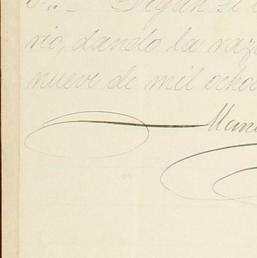 6ª.. - Digan si
rio, dando la razo
nueve de mil ocho
Man